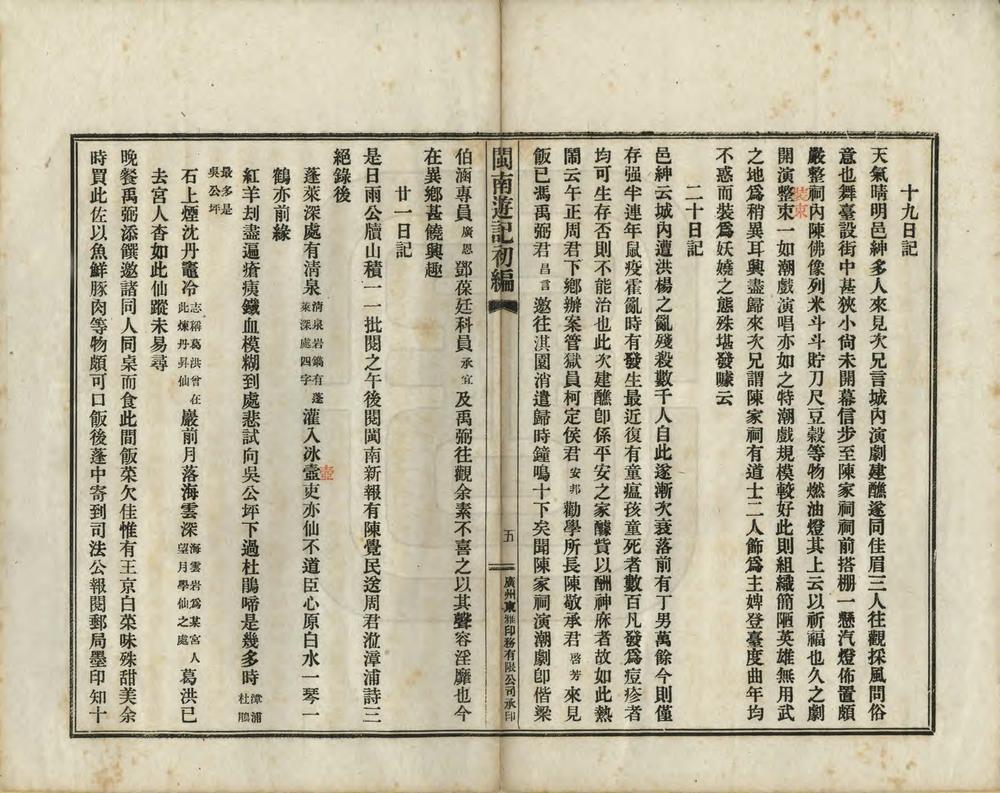 十九日記
天氣晴明邑紳多人來見次兄言城內演劇建醮遂同佳眉三人往觀採風問俗
意也舞臺設街中甚狹小尙未開幕信步至陳家祠祠前搭棚一懸汽燈佈置頗
嚴整祠內陳佛像列米斗斗貯刀尺豆穀等物燃油燈其上云以祈福也久之劇
開演整束一如潮戲演唱亦如之特潮戲規模較好此則組織簡陋英雄無用武
裝束
之地爲稍異耳興盡歸來次兄謂陳家祠有道士二人飾爲主婢登臺度曲年均
不惑而裝爲妖嬈之態殊堪發噱云
二十日記
邑紳云城內遭洪楊之亂殘殺數千人自此遂漸次衰落前有丁男萬餘今則僅
存强半連年鼠疫霍亂時有發生最近復有童瘟孩童死者數百凡發爲痘疹者
均可生存否則不能治也此次建醮卽係平安之家醵貲以酬神庥者故如此熱
鬧云午正周君下鄉辦案管獄員柯定侯君安邦勸學所長陳敬承君啓芳來見
飯已馮禹弼君昌言邀往淇園消遣歸時鐘鳴十下矣聞陳家祠演潮劇卽偕梁
閩南遊記初編
五
廣州東雅印務有限公司承印
伯涵專員廣恩鄧葆廷科員承宜及禹弼往觀余素不喜之以其聲容淫靡也今
在異鄉甚饒興趣
廿一日記
是日雨公牘山積一一批閱之午後閱閩南新報有陳覺民送周君涖漳浦詩三
絕錄後
蓬萊深處有淸泉淸泉岩鐫有蓬萊深處四字灌入冰壺吏亦仙不道臣心原白水一琴一
壺
鶴亦前緣
紅羊刦盡遍瘡痍鐵血模糊到處悲試向吳公坪下過杜鵑啼是幾多時漳浦杜鵑
最多是吳公坪
石上煙沈丹竈冷志稱葛洪曾在此煉丹昇仙巖前月落海雲深海雲岩爲某宮人望月學仙之處葛洪已
去宮人杳如此仙蹤未易尋
晚餐禹弼添饌邀諸同人同桌而食此間飯菜欠佳惟有王京白菜味殊甜美余
時買此佐以魚鮮豚肉等物頗可口飯後蓬中寄到司法公報閱郵局墨印知十